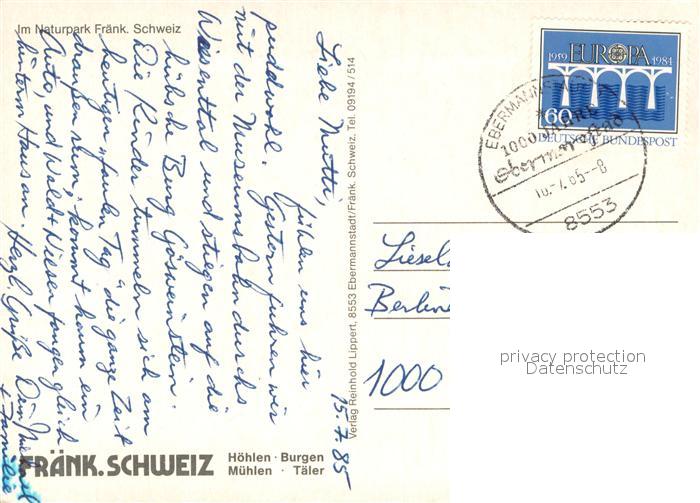 Im Naturpark Fränk. Schweiz
15.7.85
Liebe Mutti,
fühlen uns hier
puddwohl. Gestern fuhren wir
mit der Museumsbahn durchs
Wiesenttal und stiegen auf die
hübsche Burg Gösweinstein.
Die Kinder tummeln sich am
heutigen "faulen Tag" die ganze Zeit
draußen rum, kommt kaum ein
Auto, und Wald + Wiesen fangen gleich
hinterm Haus an. Herzl. Grüße Dein
+ Familie
FRÄNK. SCHWEIZ
Höhlen · Burgen
Mühlen · Täler
Verlag Reinhold Lippert, 8553 Ebermannstadt/Fränk. Schweiz, Tel. 09194 / 514
1959 EUROPA 1984
60
DEUTSCHE BUNDESPOST
EBERMANNSTADT
1000 JAHRE
Ebermannstadt
8553
Liesel
Berline
1000
privacy protection
Datenschutz